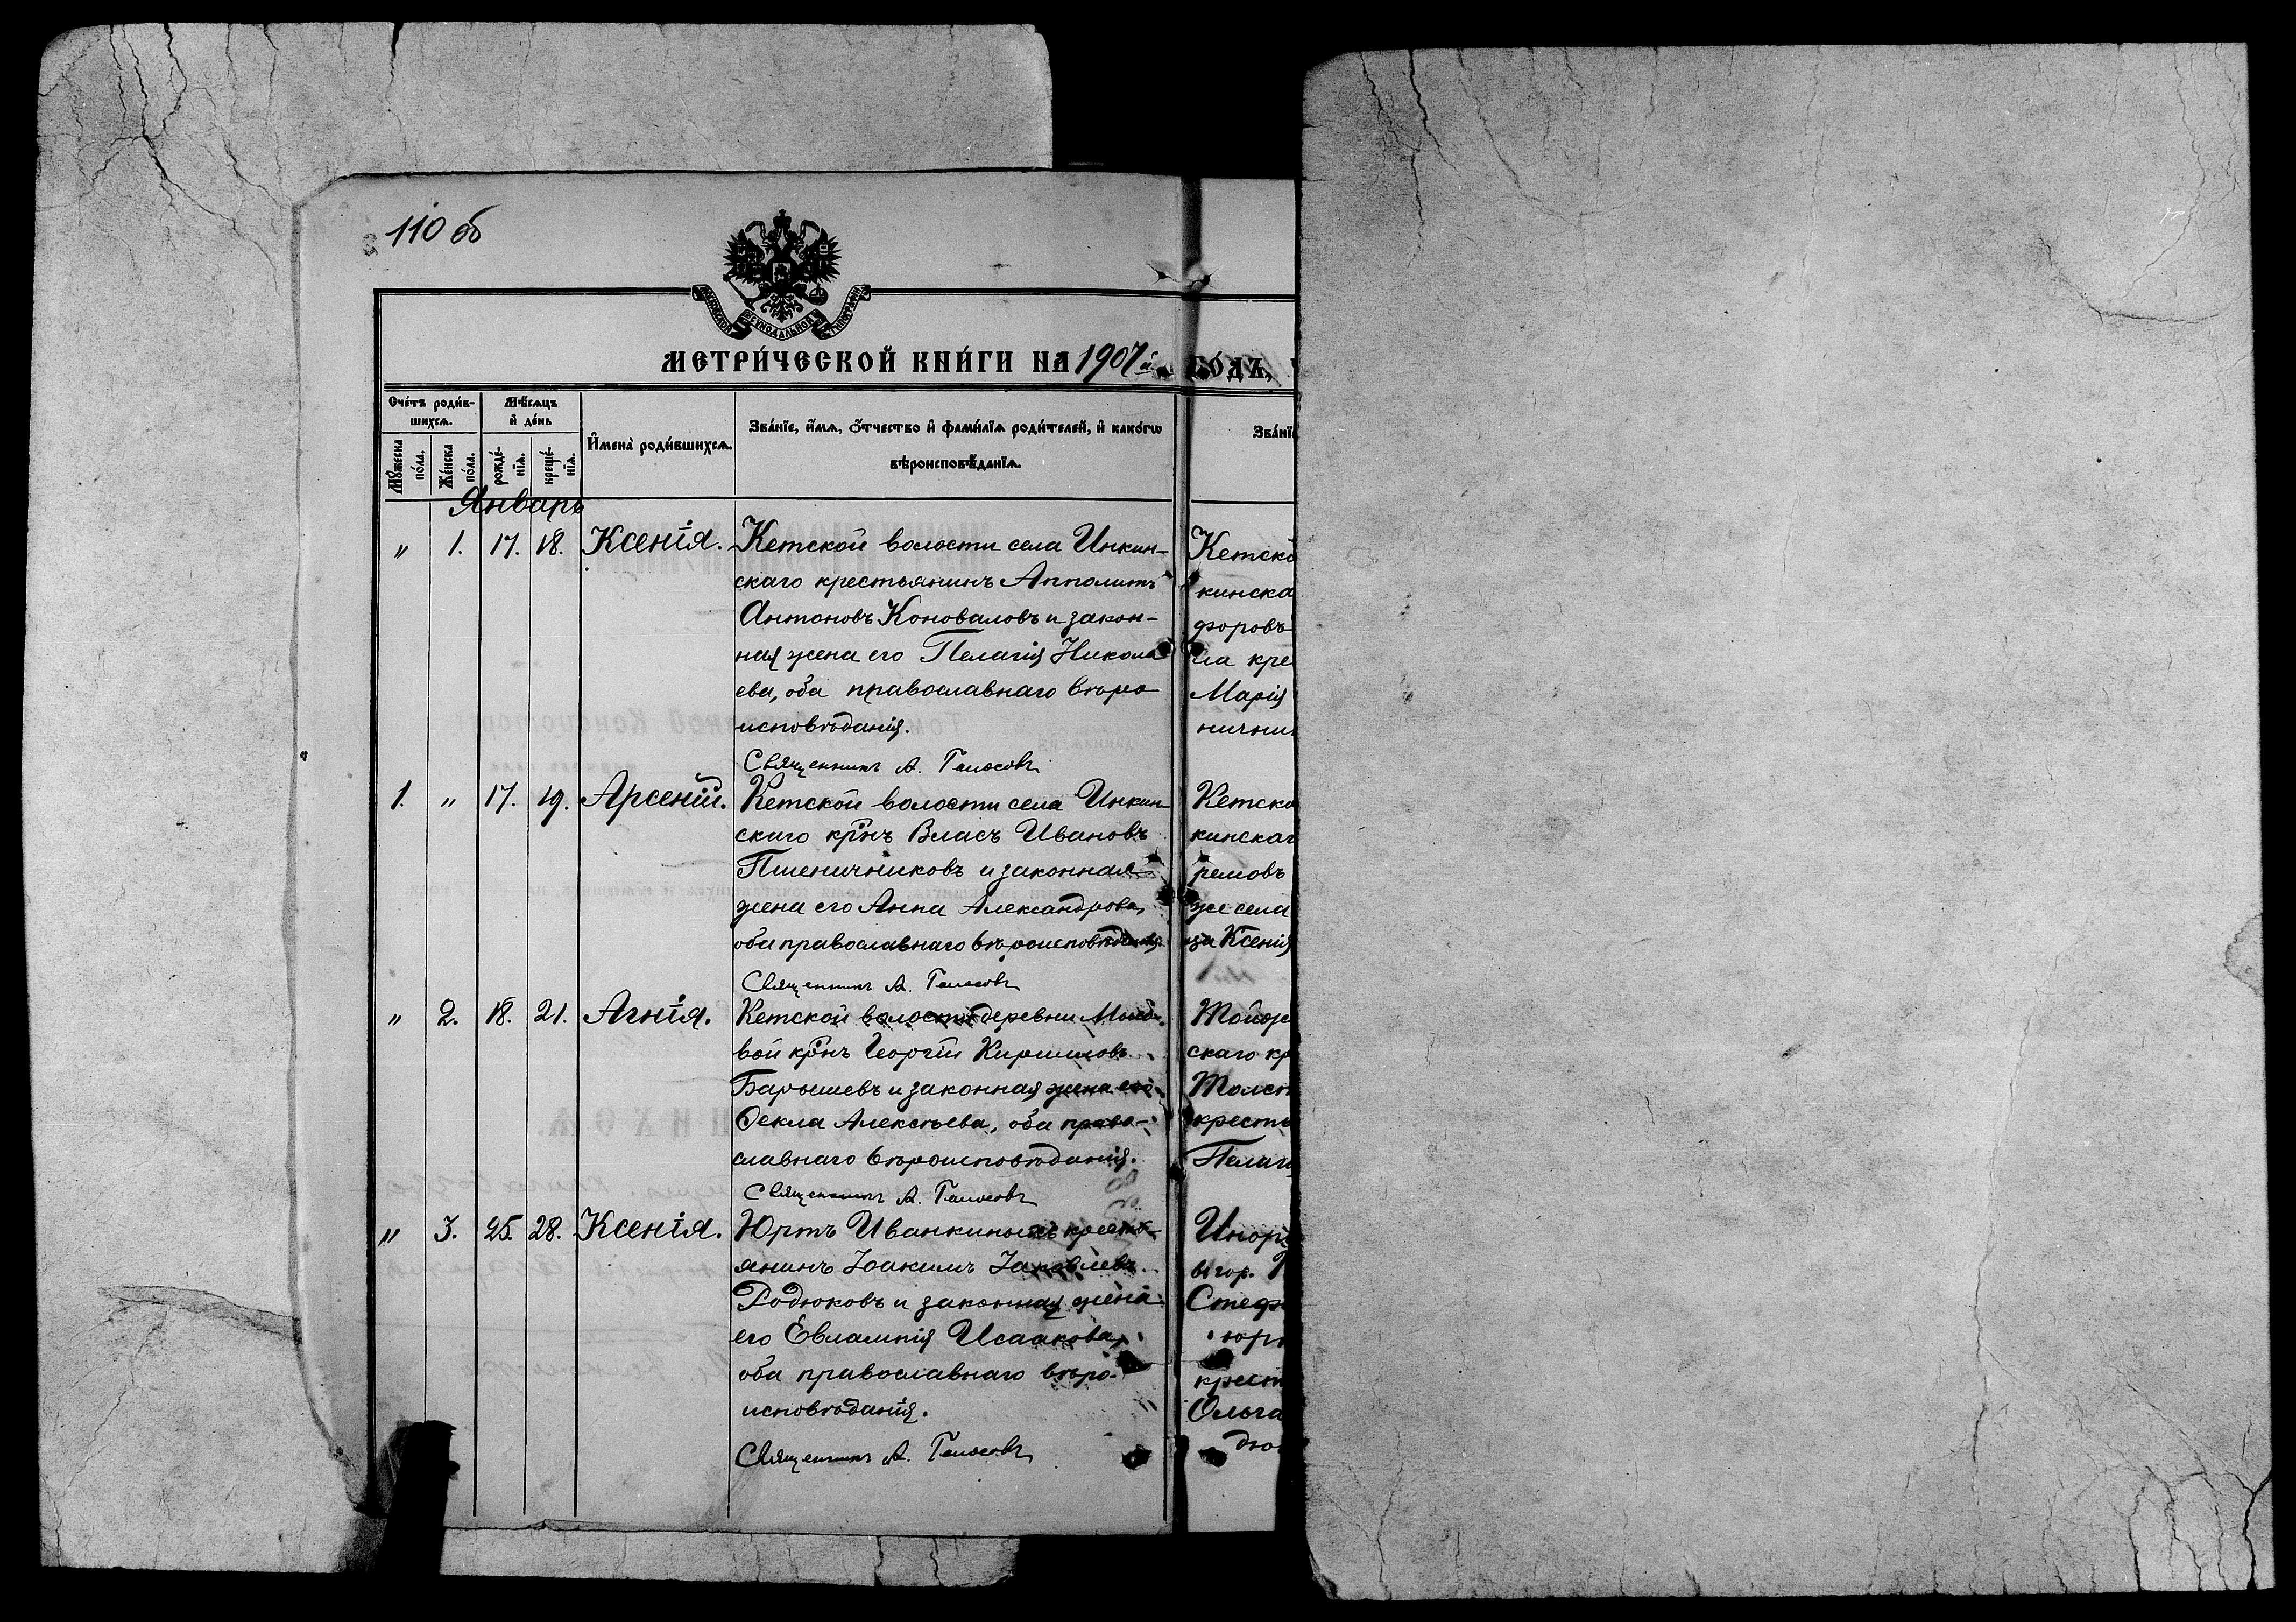 110 об
МОСКОВСКОЙ СѴНОДАЛЬНОЙ ТИПОГРАФІИ
МЕТРИ́ЧЕСКОЙ КНИ́ГИ НА 1907й ГО́ДЪ,
Сче́тъ роди́в-
шихсѧ.
Мѣ́сѧцъ
и҆ де́нь
И҆мена̀ роди́вшихсѧ.
Зва́нїе, и҆́мѧ, ѻ҆́тчество и҆ фами́лїѧ роди́телей, и҆ како́гѡ
вѣроисповѣ́данїѧ.
Мꙋ́жеска
по́ла.
Же́нска
по́ла.
рожде́-
нїѧ.
креще́-
нїѧ.
Январь
„ 1. 17. 18. Ксенія. Кетской волости села Инкин-
скаго крестьянинъ Апполитъ
Антоновъ Коноваловъ и закон-
ная жена его Пелагія Никола
ева, оба православнаго вѣро
исповѣданія.
Священникъ А. Голосовъ
1. „ 17. 19. Арсеній. Кетской волости села Инкин
скаго крнъ Власъ Ивановъ
Пшеничниковъ и законная
жена его Анна Александрова,
оба православнаго вѣроисповѣданія.
Священникъ А. Голосовъ
„ 2. 18. 21. Агнія. Кетской волости деревни
вой крнъ Георгій Кирилловъ
Барышевъ и законная жена его
Ѳекла Алексѣева, оба право-
славнаго вѣроисповѣданія.
Священникъ А. Голосовъ
„ 3. 25. 28. Ксенія. Юртъ Иванкиныхъ кресть-
янинъ Іоакимъ Іаковлевъ
Родюковъ и законная жена
его Евлампія Исаакова,
оба православнаго вѣро-
исповѣданія.
Священникъ А. Голосовъ
Зва́нї
Кетско
кинска
форовъ
ла кре
Марія
нични
Кетско
кинскаг
ремовъ
же села
за Ксенія
скаго кр
Толст
кресть
Пелаг
Инор
Стеф
юр
крест
Ольга
дю